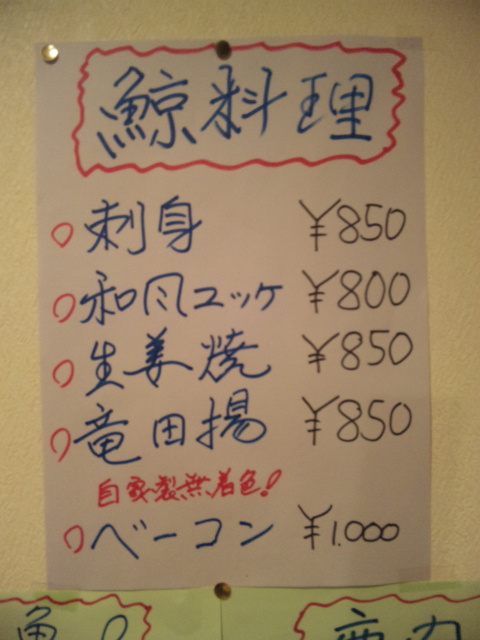 鯨料理
刺身 ¥850
和風ユッケ ¥800
生姜焼 ¥850
竜田揚 ¥850
自家製無着色!
ベーコン ¥1.000